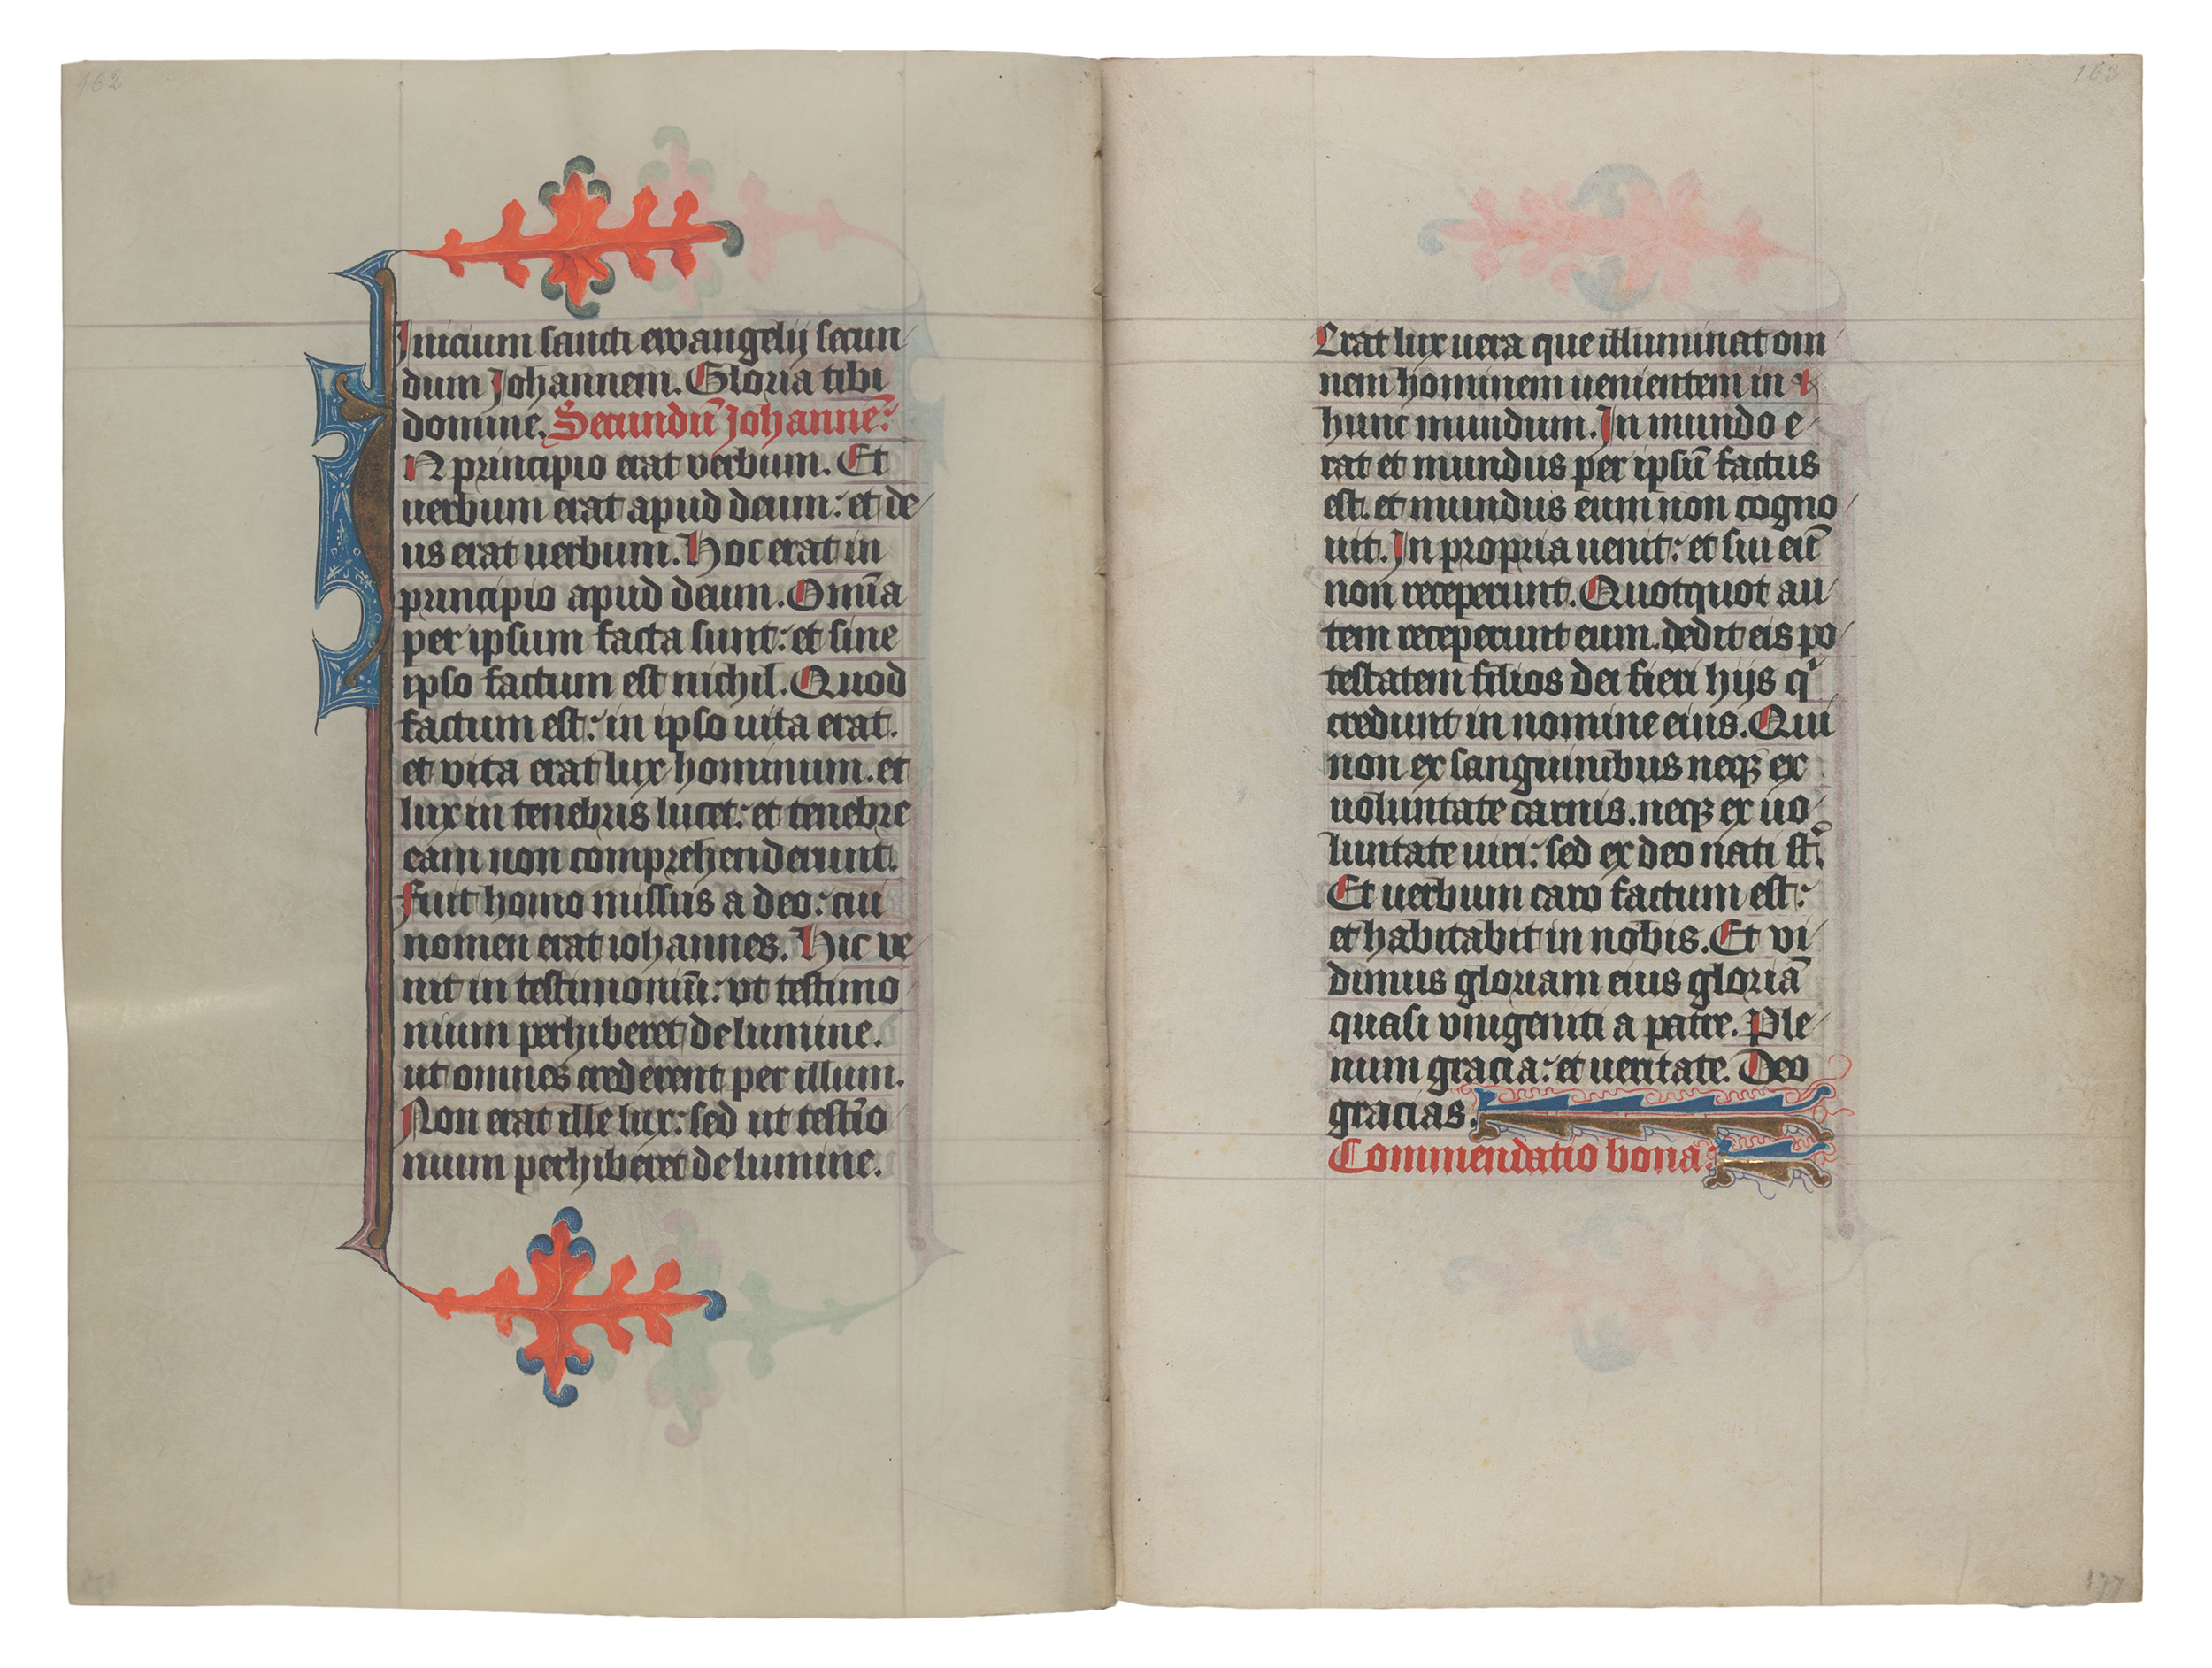 162
Inicium sancti ewangelij secun
dum Johannem. Gloria tibi
domine. Secundũ Johannẽ:
N principio erat verbum. Et
uerbum erat apud deum: et de
us erat uerbum. Hoc erat in
principio apud deum. Omĩa
per ipsum facta sunt: et sine
ipso factum est nichil. Quod
factum est: in ipso uita erat.
et vita erat lux hominum. et
lux in tenebris lucet: et tenebre
eam non comprehenderunt.
Fuit homo missus a deo: cui
nomen erat iohannes. Hic ve
nit in testimoniũ: vt testimo
nium perhiberet de lumine.
ut omnes crederent per illum.
Non erat ille lux: sed ut testĩo
nium perhiberet de lumine.
163
Erat lux uera que illuminat om
nem hominem uenientem in
hunc mundum. In mundo e
rat et mundus per ipsũ factus
est. et mundus eum non cogno
uit. In propria uenit: et sui eũ
non receperunt. Quotquot au
tem receperunt eum. dedit eis po
testatem filios dei fieri hijs qͥ
credunt in nomine eius. Qui
non ex sanguinibus neqꝫ ex
uoluntate carnis. neqꝫ ex uo
luntate uiri: sed ex deo nati st̃.
Et uerbum caro factum est:
et habitabit in nobis. Et vi
dimus gloriam eius gloriã
quasi vnigeniti a patre. Ple
num gracia: et ueritate. Deo
gracias.
Commendatio bona:
177